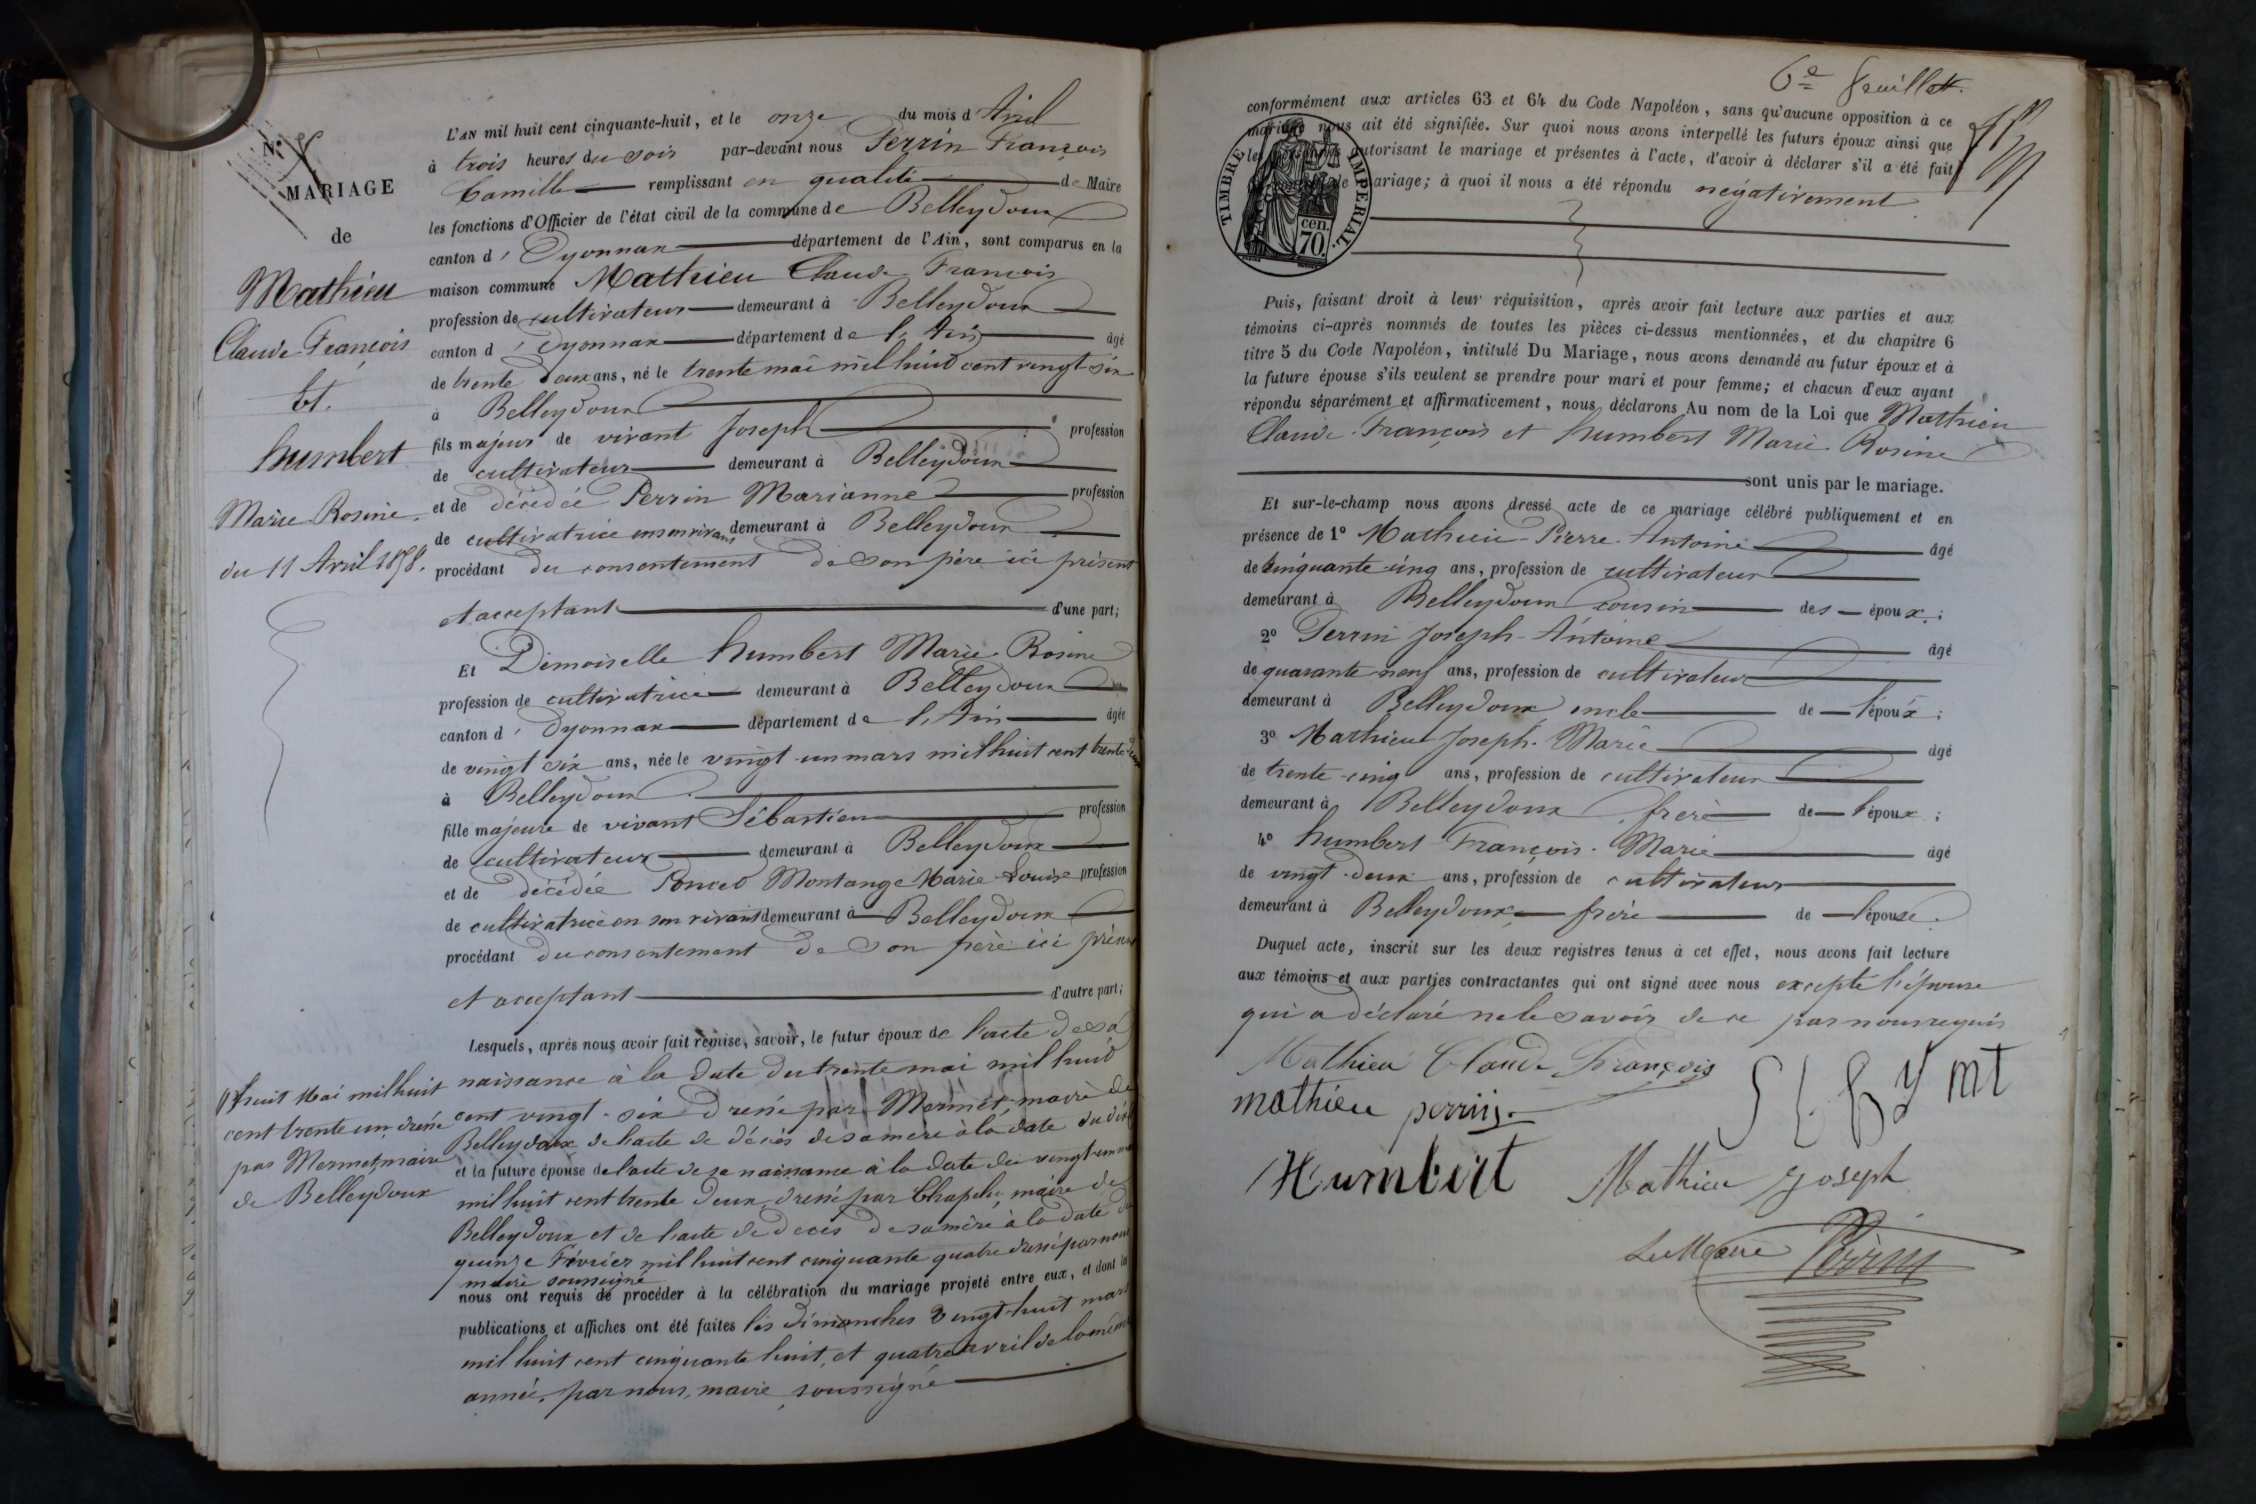 N.º
MARIAGE
de
Mathieu
Claude François
Et.
humbert
Marie Rosine.
du 11 Avril 1858.
L'AN mil huit cent cinquante-huit, et le onze du mois d'Avril
à trois heures du soir par-devant nous Perrin François
Camille remplissant en qualité de Maire
les fonctions d'Officier de l'état civil de la commune de Belleydoux
canton d'Oyonnax département de l'Ain, sont comparus en la
maison commune Mathieu Claude François
profession de cultivateur demeurant à Belleydoux
canton d'Oyonnax département de l'Ain âgé
de trente deux ans, né le trente mai mil huit cent vingt-six
à Belleydoux
fils majeur de vivant Joseph profession
de cultivateur demeurant à Belleydoux
et de décédée Perrin Marianne profession
de cultivatrice en son vivant demeurant à Belleydoux
procédant du consentement de son père ici présent
et acceptant d'une part;
Et Demoiselle humbert Marie Rosine
profession de cultivatrice demeurant à Belleydoux
canton d'Oyonnax département de l'Ain âgée
de vingt six ans, née le vingt-un mars mil huit cent trente-deux
à Belleydoux
fille majeure de vivant Sébastien profession
de cultivateur demeurant à Belleydoux
et de décédée Poncet Montange Marie Louise profession
de cultivatrice en son vivant demeurant à Belleydoux
procédant du consentement de son père ici présent
et acceptant d'autre part;
Lesquels, après nous avoir fait remise, savoir, le futur époux de l'acte de sa
naissance à la date du trente mai mil huit
cent vingt-six dressé par Mermet, maire de
Belleydoux de l'acte de décès de sa mère à la date du dix
huit Mai mil huit
cent trente un, dressé
par Mermet, maire
de Belleydoux
et la future épouse de l'acte de sa naissance à la date du vingt-un mars
mil huit cent trente deux, dressé par Chapelu, maire de
Belleydoux et de l'acte de décès de sa mère à la date du
quinze Février mil huit cent cinquante quatre dressé par nous
maire soussigné
nous ont requis de procéder à la célébration du mariage projeté entre eux, et dont les
publications et affiches ont été faites les dimanches vingt-huit mars
mil huit cent cinquante huit, et quatre avril de la même
année, par nous, maire soussigné
6e feuillet.
conformément aux articles 63 et 64 du Code Napoléon, sans qu'aucune opposition à ce
mariage nous ait été signifiée. Sur quoi nous avons interpellé les futurs époux ainsi que
les autorisant le mariage et présentes à l'acte, d'avoir à déclarer s'il a été fait
de mariage; à quoi il nous a été répondu négativement
TIMBRE IMPÉRIAL.
cen.
70.
Puis, faisant droit à leur réquisition, après avoir fait lecture aux parties et aux
témoins ci-après nommés de toutes les pièces ci-dessus mentionnées, et du chapitre 6
titre 5 du Code Napoléon, intitulé Du Mariage, nous avons demandé au futur époux et à
la future épouse s'ils veulent se prendre pour mari et pour femme; et chacun d'eux ayant
répondu séparément et affirmativement, nous déclarons Au nom de la Loi que Mathieu
Claude François et humbert Marie Rosine
sont unis par le mariage.
Et sur-le-champ nous avons dressé acte de ce mariage célébré publiquement et en
présence de 1º Mathieu Pierre Antoine âgé
de cinquante cinq ans, profession de cultivateur
demeurant à Belleydoux cousin des époux;
2º Perrin Joseph-Antoine âgé
de quarante neuf ans, profession de cultivateur
demeurant à Belleydoux oncle de l'époux;
3º Mathieu Joseph-Marie âgé
de trente-cinq ans, profession de cultivateur
demeurant à Belleydoux frère de l'époux;
4º humbert François-Marie âgé
de vingt-deux ans, profession de cultivateur
demeurant à Belleydoux frère de l'épouse.
Duquel acte, inscrit sur les deux registres tenus à cet effet, nous avons fait lecture
aux témoins et aux parties contractantes qui ont signé avec nous excepté l'épouse
qui a déclaré ne le savoir de ce par nous requis
Mathieu Claude François
mathieu perrin
Humbert Mathieu Joseph
Le Maire Perrin